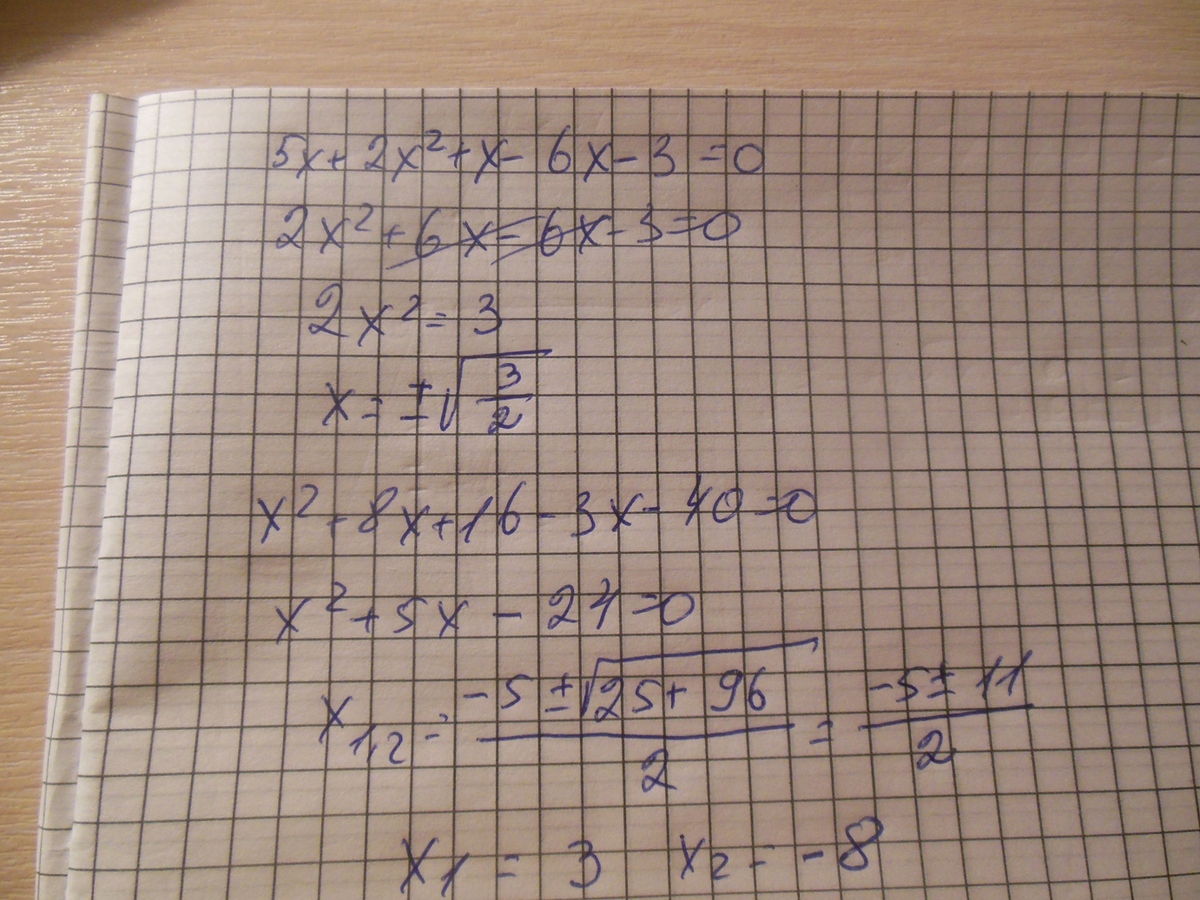 5x+2x²+x-6x-3=0
2x²+6x-6x-3=0
2x²=3
x=±√(3/2)
x²+8x+16-3x-40=0
x²+5x-24=0
x₁,₂=(-5±√(25+96))/2=(-5±11)/2
x₁=3 x₂=-8